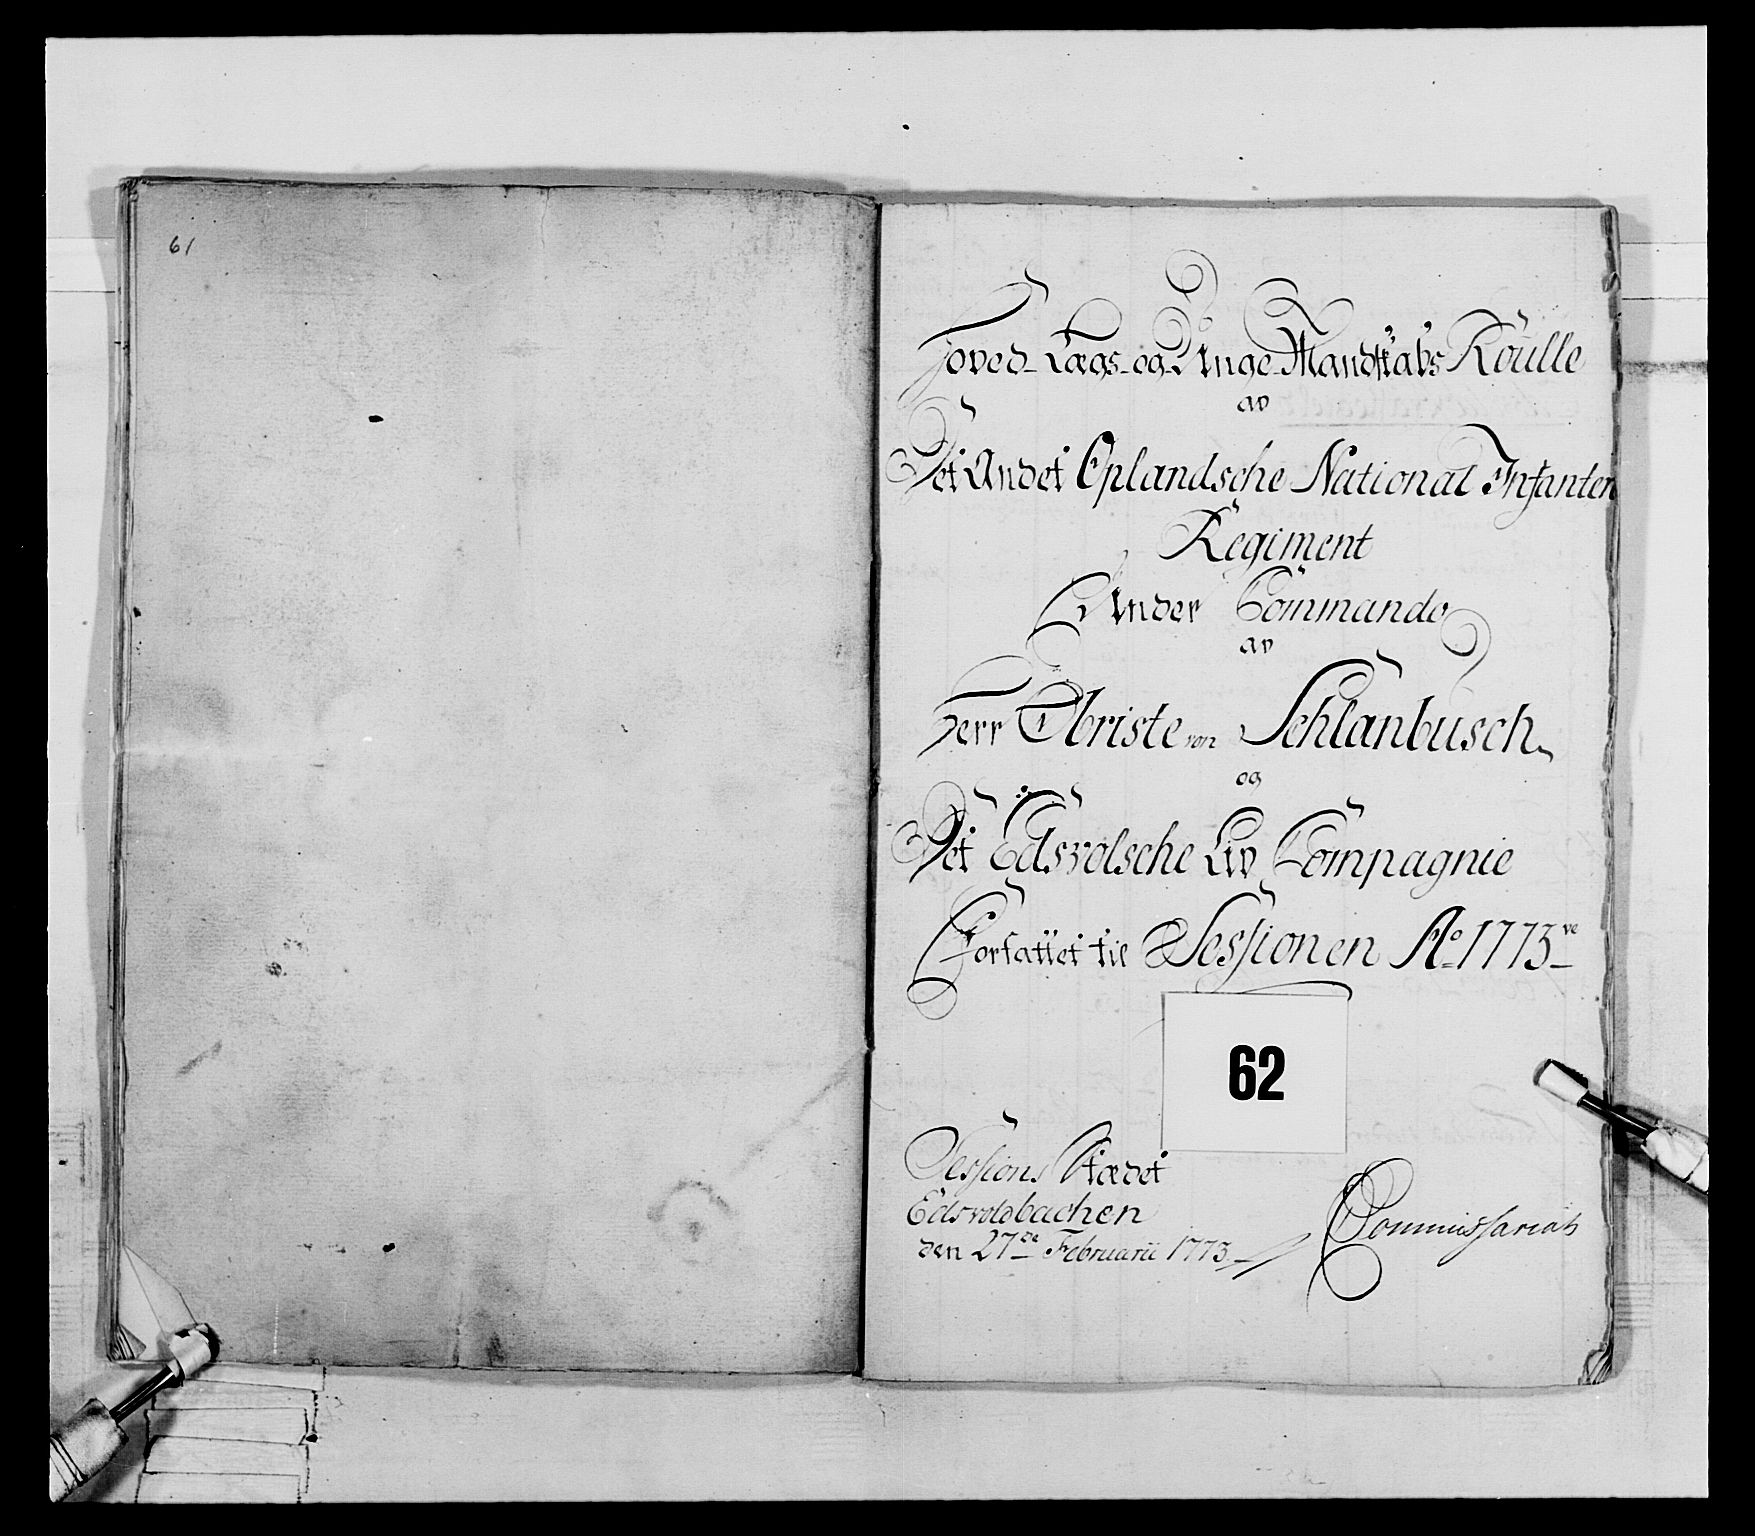 61
Hoved-Lægs-og-Unge-Mandskabs Roulle
av
Det Andet Oplandsche National Infanteri
Regiment
Under Commando
av
Herr Obriste von Schlanbusch
og
Det Edsvolsche Liv Compagnie
Forfattet til Sessionen Ao 1773ve
62
Sessions Stædet
Edsvoldbachen
den 27de Februarii 1773
Commissariats